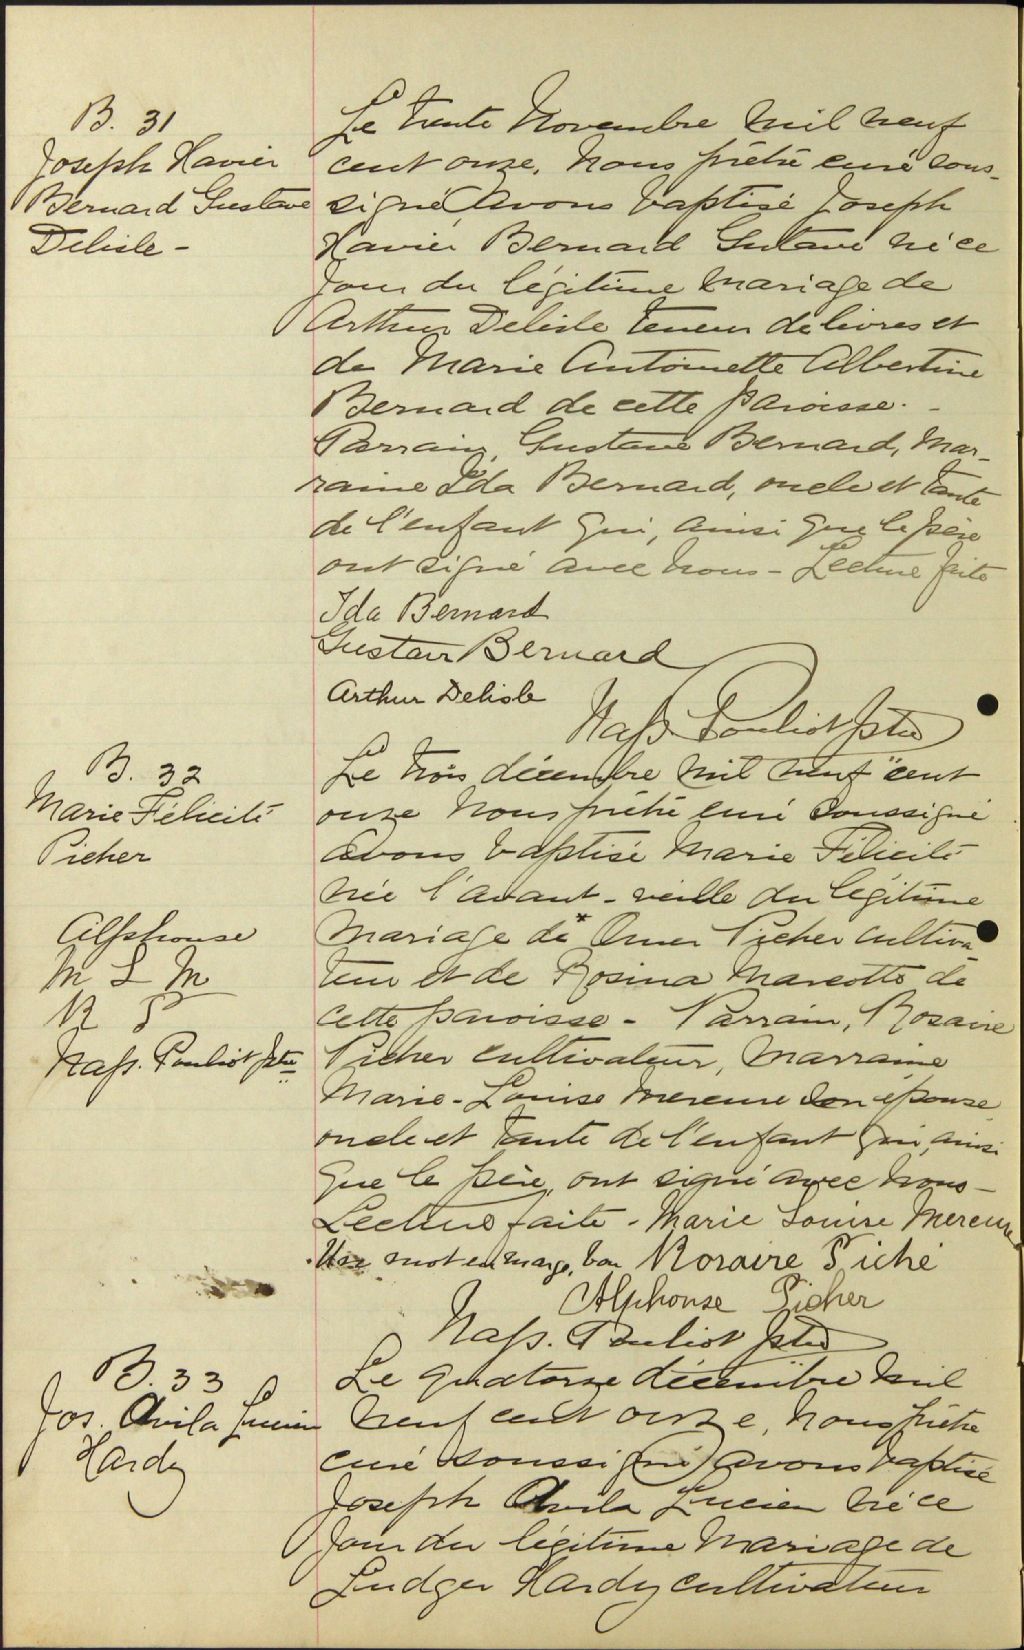 B. 31
Joseph Xavier
Bernard Gustave
Delisle -
Le trente Novembre mil neuf
cent onze, Nous prêtre curé sous-
signé avons baptisé Joseph
Xavier Bernard Gustave né ce
jour du légitime mariage de
Arthur Delisle teneur de livres et
de Marie Antoinette Albertine
Bernard de cette paroisse. -
Parrain, Gustave Bernard, Mar-
raine Ida Bernard, oncle et tante
de l'enfant qui, ainsi que le père
ont signé avec nous - Lecture faite
Ida Bernard
Gustave Bernard
Arthur Delisle
Nap. Pouliot ptre
B. 32
Marie Félicité
Picher
Le trois décembre mil neuf cent
onze Nous prêtre curé soussigné
avons baptisé Marie Félicité
née l'avant-veille du légitime
mariage de * Omer Picher cultiva-
teur et de Rosina Marcotte de
cette paroisse - Parrain, Rosaire
Picher cultivateur, Marraine
Marie-Louise Mercure son épouse
oncle et tante de l'enfant qui, ainsi
que le père, ont signé avec nous -
Lecture faite - Marie Louise Mercure
Un mot en marge, bon Rosaire Piché
Alphonse Picher
Nap. Pouliot ptre
Alphonse
M L M
R P
Nap. Pouliot ptre
B. 33
Jos. Avila Lucien
Hardy
Le quatorze décembre mil
neuf cent onze, Nous prêtre
curé soussigné avons baptisé
Joseph Avila Lucien né ce
jour du légitime mariage de
Ludger Hardy cultivateur